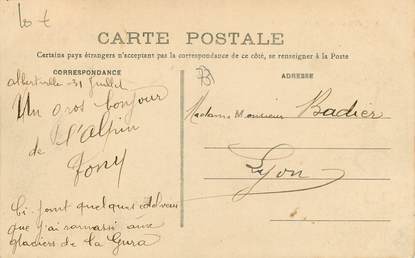 CARTE POSTALE
Certains pays étrangers n'acceptent pas la correspondance de ce côté, se renseigner à la Poste
CORRESPONDANCE
ADRESSE
Albertville 31 Juillet
Un gros bonjour
de l'Alpin
Tony
Ci-joint quelques
que j'ai ramassi aux
glaciers de la Gura
Madame Monsieur Badier
Lyon